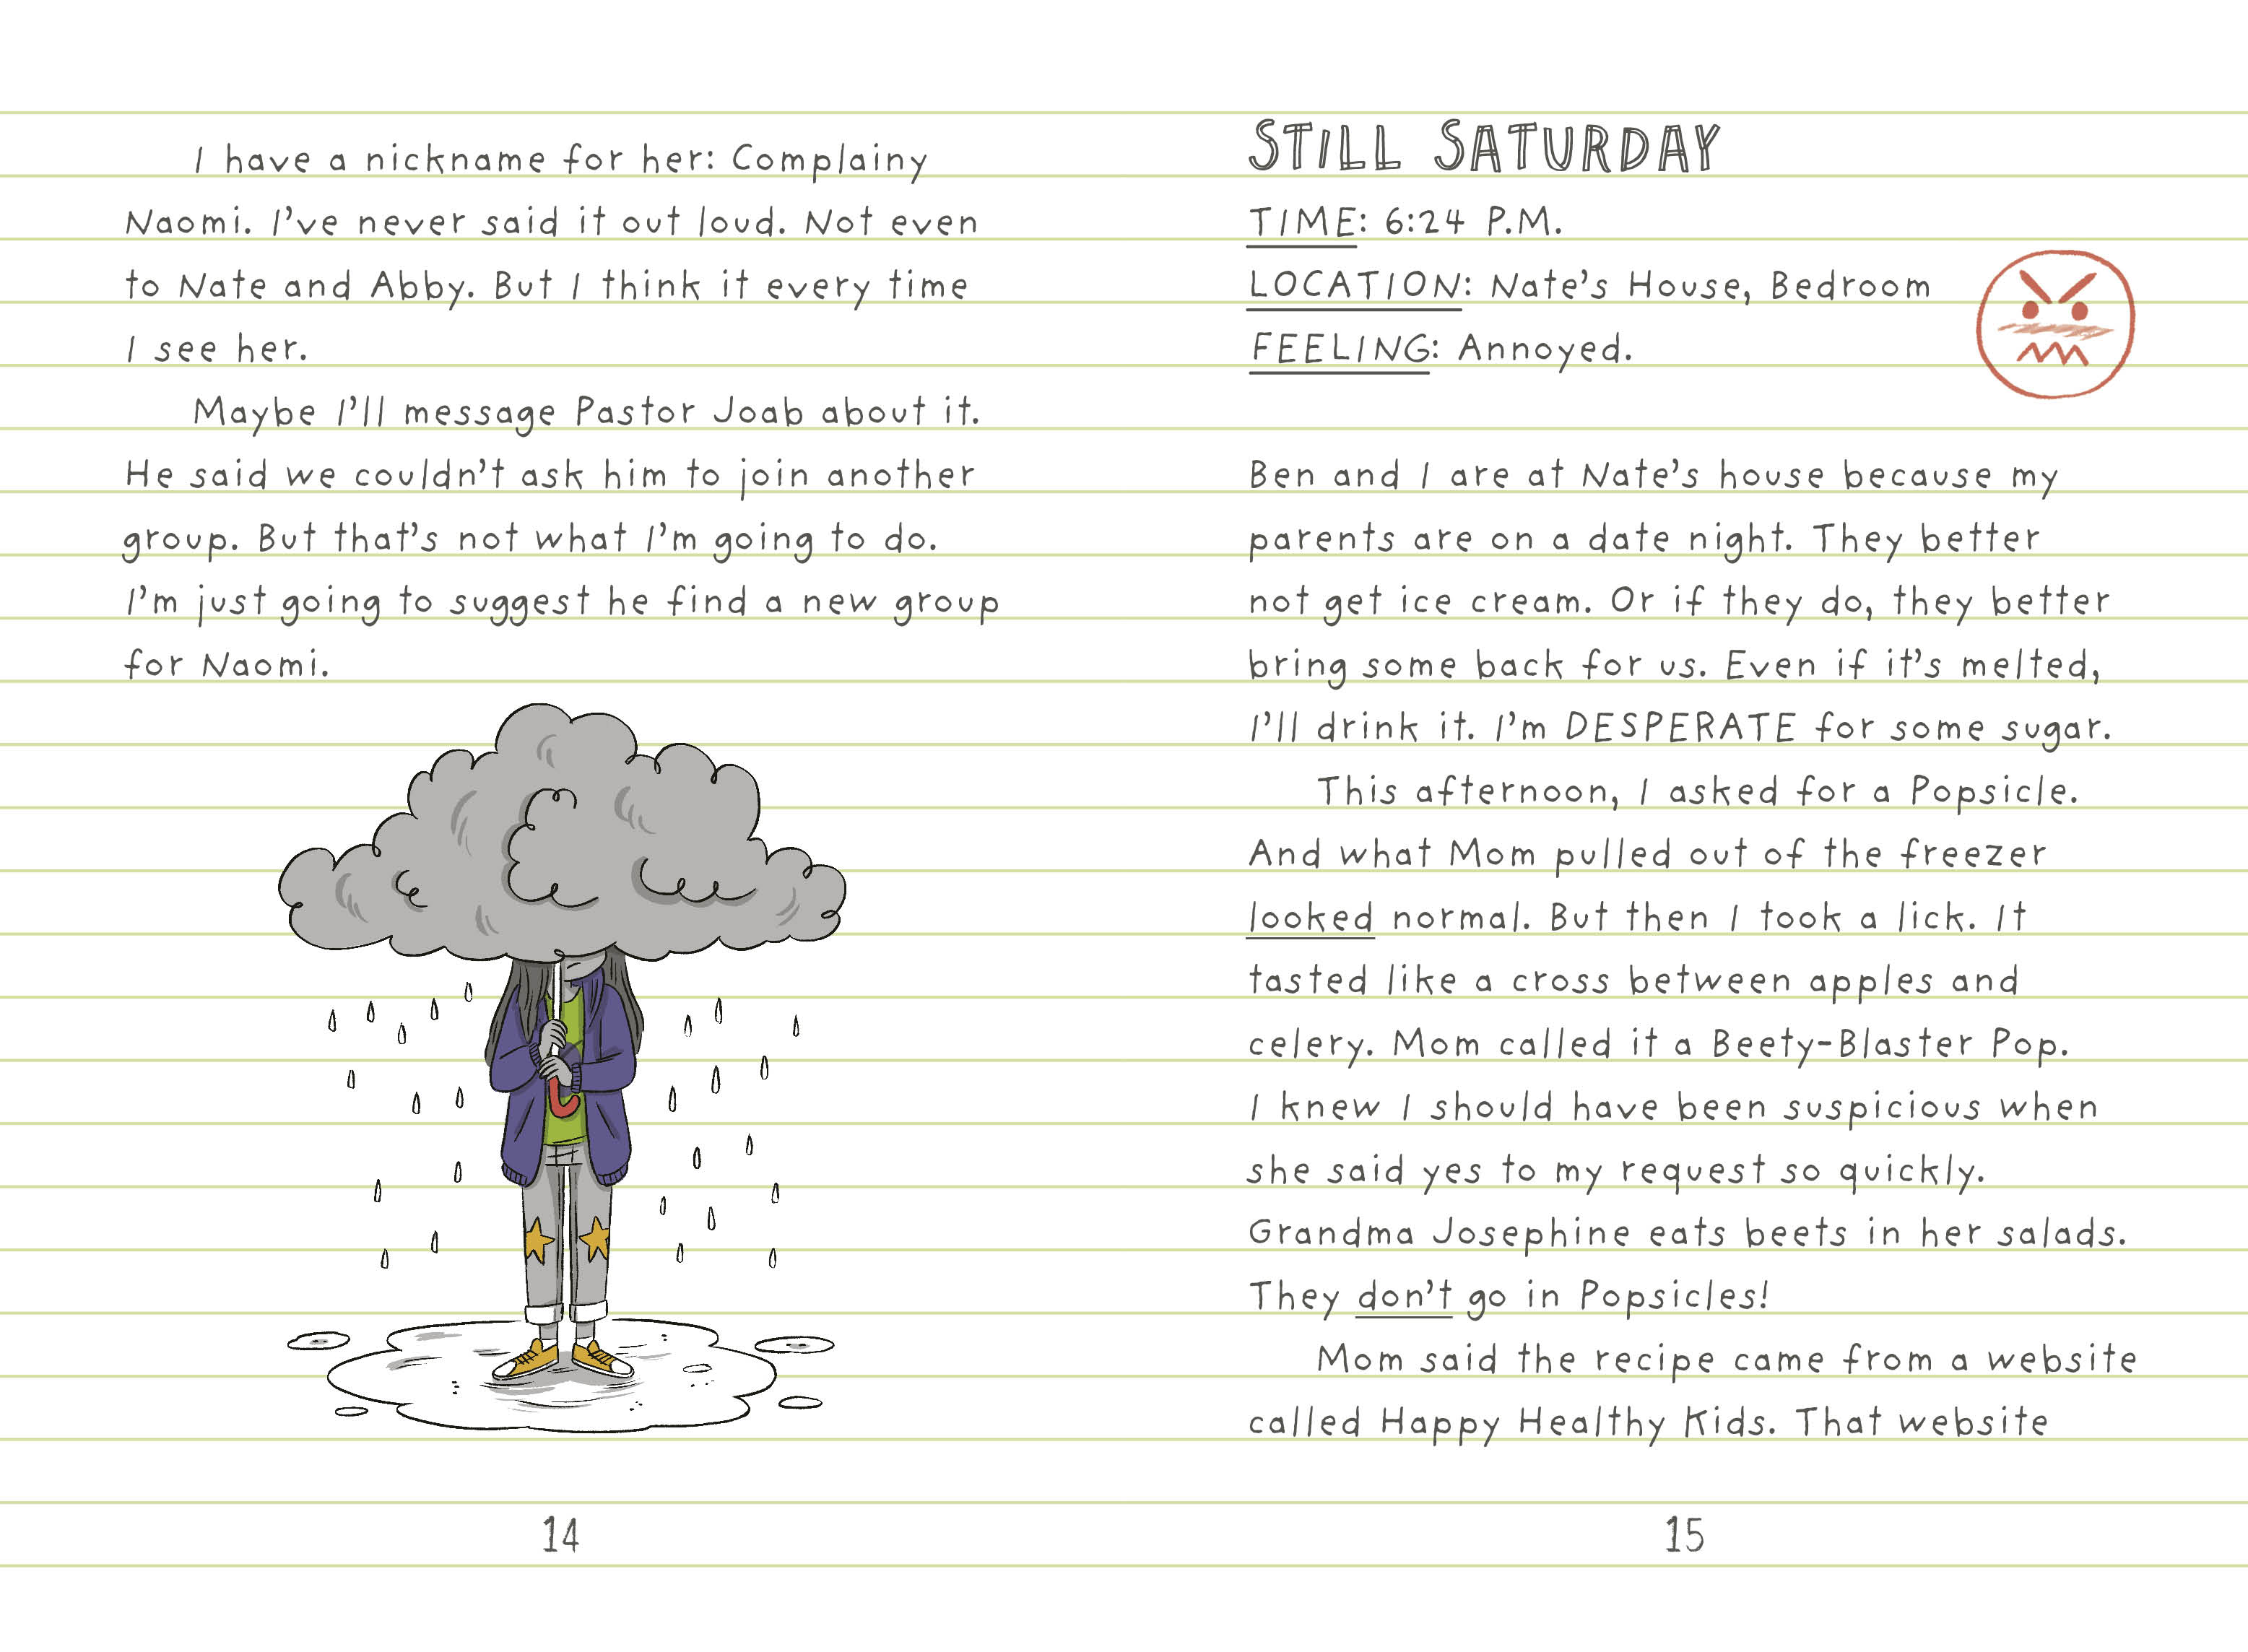 I have a nickname for her: Complainy
Naomi. I've never said it out loud. Not even
to Nate and Abby. But I think it every time
I see her.
Maybe I'll message Pastor Joab about it.
He said we couldn't ask him to join another
group. But that's not what I'm going to do.
I'm just going to suggest he find a new group
for Naomi.
14
STILL SATURDAY
TIME: 6:24 P.M.
LOCATION: Nate's House, Bedroom
FEELING: Annoyed.
Ben and I are at Nate's house because my
parents are on a date night. They better
not get ice cream. Or if they do, they better
bring some back for us. Even if it's melted,
I'll drink it. I'm DESPERATE for some sugar.
This afternoon, I asked for a Popsicle.
And what Mom pulled out of the freezer
looked normal. But then I took a lick. It
tasted like a cross between apples and
celery. Mom called it a Beety-Blaster Pop.
I knew I should have been suspicious when
she said yes to my request so quickly.
Grandma Josephine eats beets in her salads.
They don't go in Popsicles!
Mom said the recipe came from a website
called Happy Healthy Kids. That website
15